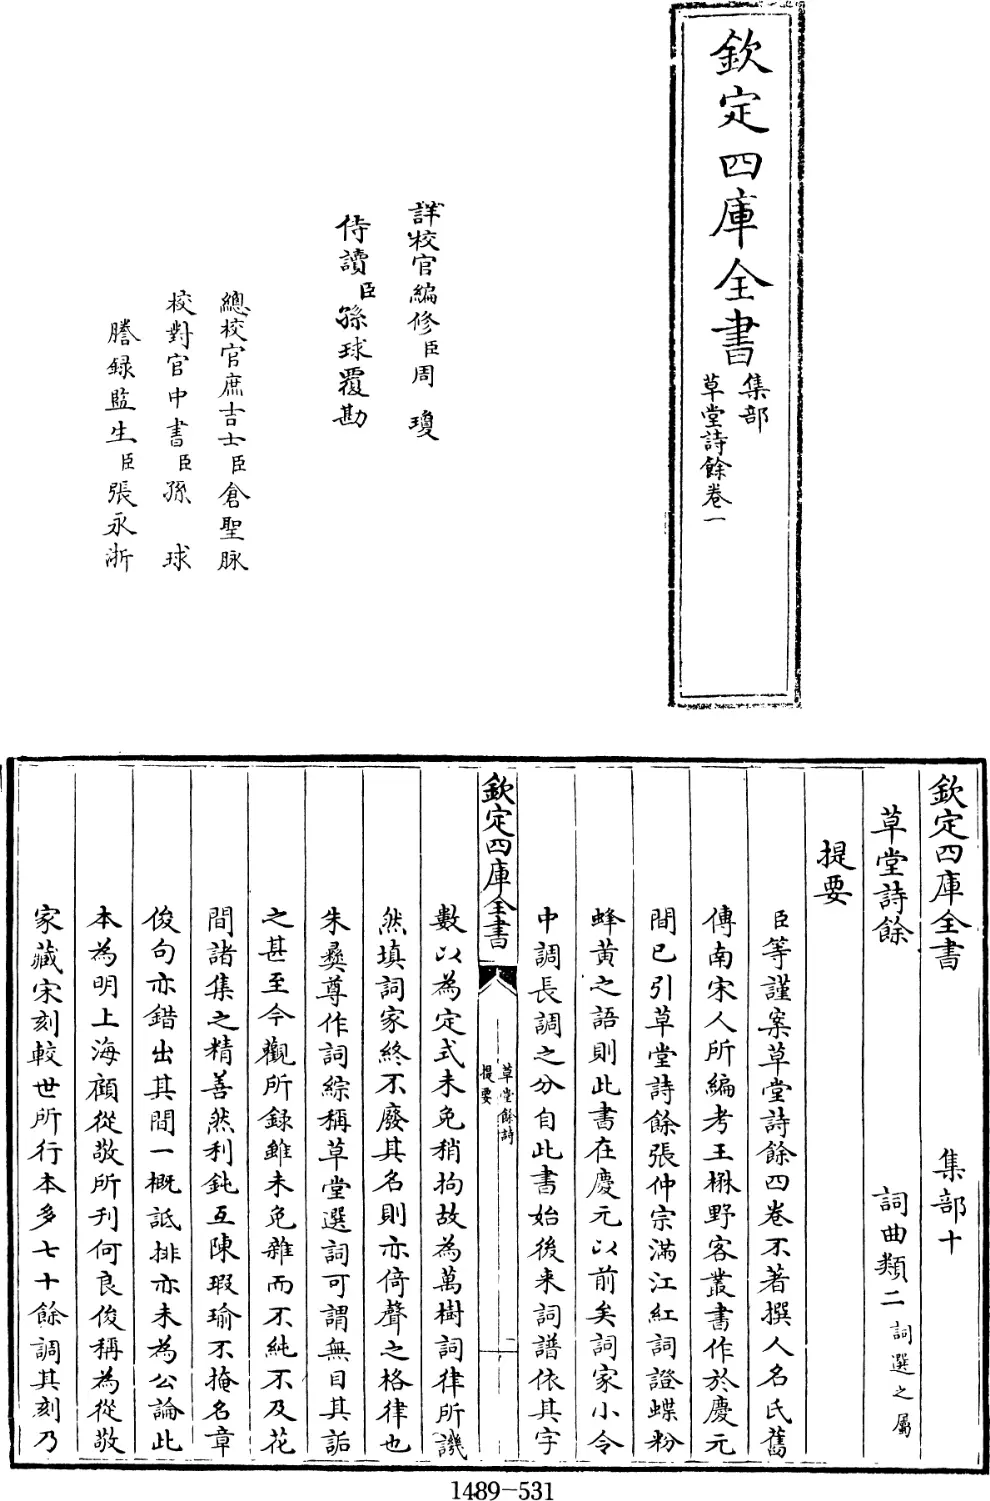 欽定四庫全書
集部
草堂詩餘卷一
詳校官編修臣周瓊
侍讀臣孫球覆勘
總校官庶吉士臣倉聖脉
校對官中書臣孫球
謄録監生臣張永浙
欽定四庫全書 集部十
草堂詩餘 詞曲類二詞選之屬
提要
臣等謹案草堂詩餘四卷不著撰人名氏舊
傳南宋人所編考王楙野客叢書作於慶元
間已引草堂詩餘張仲宗滿江紅詞證蝶粉
蜂黄之語則此書在慶元以前矣詞家小令
中調長調之分自此書始後来詞譜依其字
欽定四庫全書
草堂餘詩
提要
二
數以為定式未免稍拘故為萬樹詞律所譏
然填詞家終不廢其名則亦倚聲之格律也
朱彝尊作詞綜稱草堂選詞可謂無目其詬
之甚至今觀所録雖未免雜而不純不及花
間諸集之精善然利鈍互陳瑕瑜不掩名章
俊句亦錯出其間一概詆排亦未為公論此
本為明上海顧從敬所刋何良俊稱為從敬
家藏宋刻較世所行本多七十餘調其刻乃
1489-531